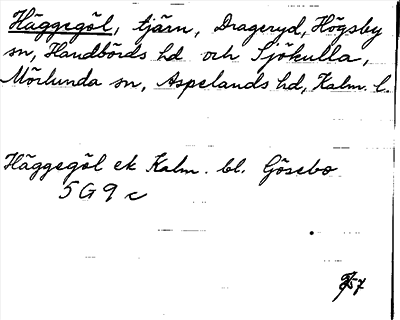 Häggegöl, tjärn, Drageryd, Högsby
sn, Handbörds hd och Sjökulla,
Mörlunda sn, Aspelands hd, Kalm. l.
Häggegöl ek Kalm. bl. Gösebo
5 G 9 c
57